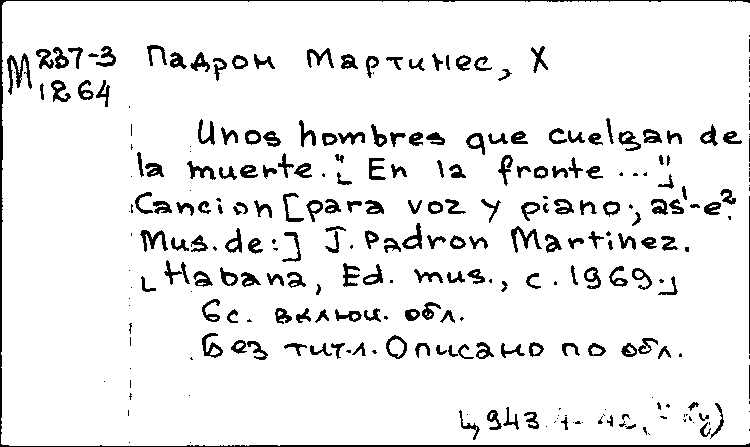 М 237-3 Падрон Мартинес, Х
1264
Unos hombres que cuelgan de
la muerte. "[ En la fronte ..."]
Cancion [para voz y piano; as¹-e².
Mus. de:] J. Padron Martinez.
[Habana, Ed. mus., c. 1969.]
6с. включ. обл.
Без тит.л. Описано по обл.